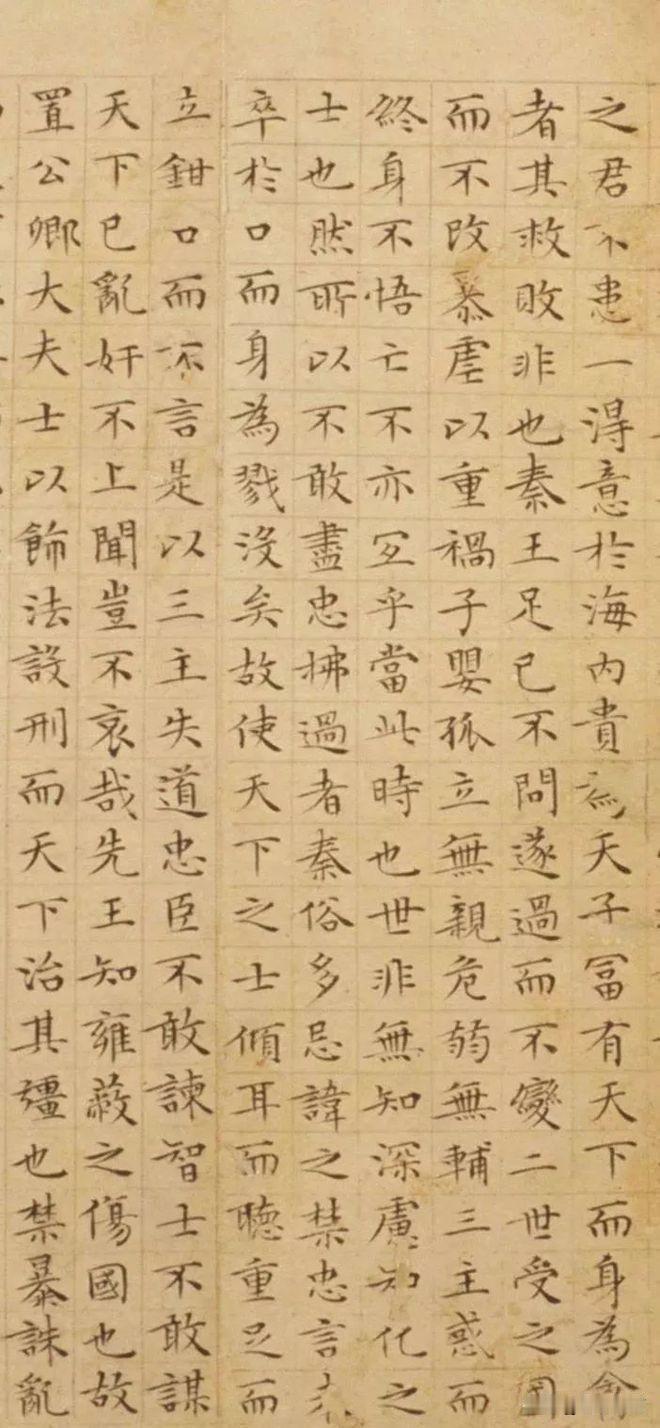 之君不患一淂意於海内貴為天子冨有天下而身為禽
者其救敗非也秦王足已不問遂過而不變二世受之因
而不改暴虐以重禍子嬰孤立無親危弱無輔三主惑而
終身不悟亡不亦宜乎當此時也世非無知深慮知化之
士也然所以不敢盡忠拂過者秦俗多忌諱之禁忠言未
卒於口而身為戮沒矣故使天下之士傾耳而聽重足而
立鉗口而不言是以三主失道忠臣不敢諫智士不敢謀
天下已亂奸不上聞豈不哀哉先王知雍蔽之傷國也故
置公卿大夫士以飾法設刑而天下治其彊也禁暴誅亂